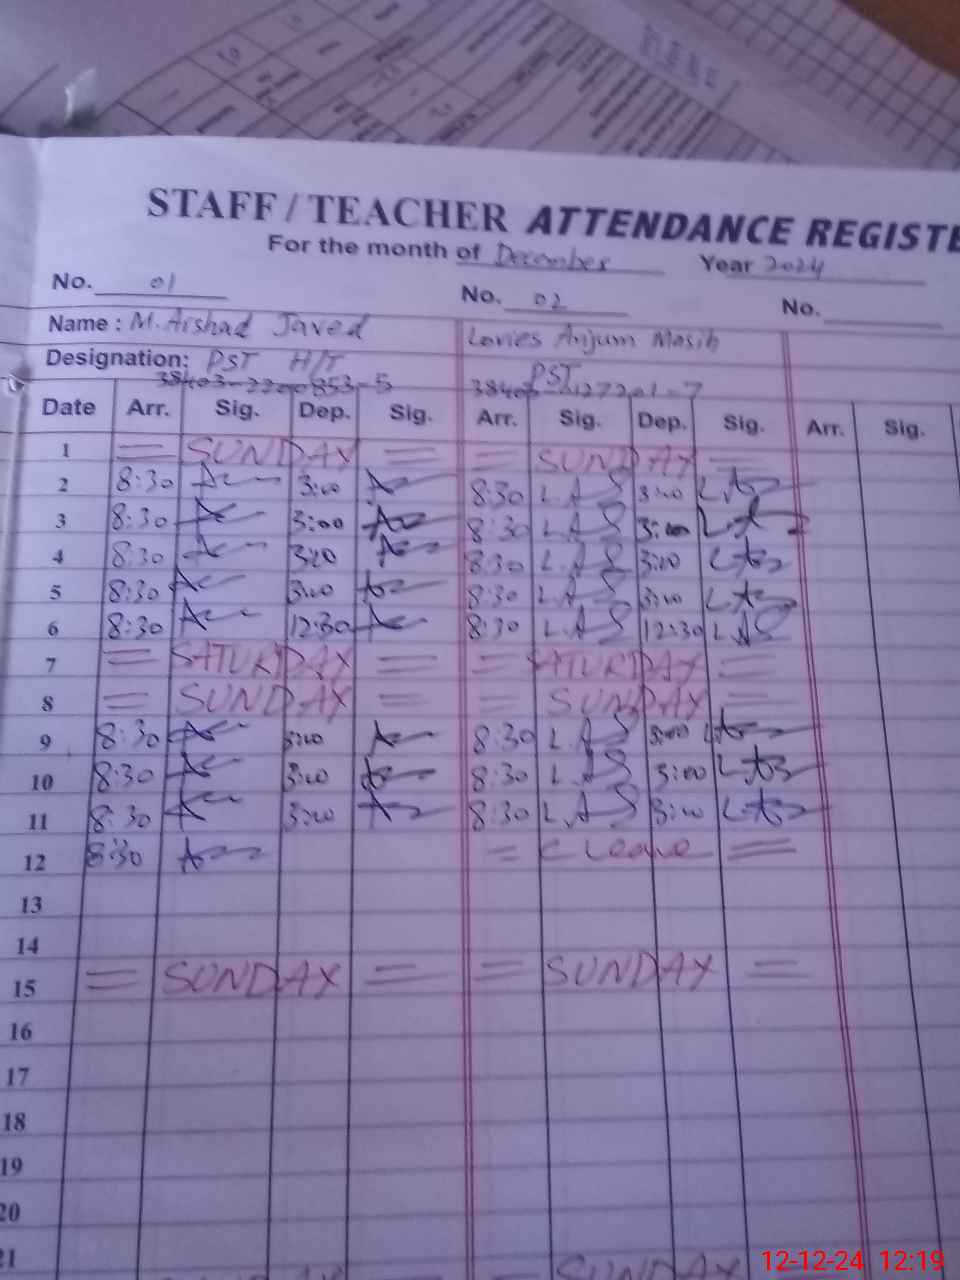 STAFF / TEACHER ATTENDANCE REGISTE
For the month of December Year 2024
No. 01 No. 02 No.
Name : M. Arshad Javed Lovies Anjum Masih
Designation: PST H/T PST
38403-2200853-5
Date Arr. Sig. Dep. Sig. Arr. Sig. Dep. Sig. Arr. Sig.
1 = SUNDAY = = SUNDAY =
2 8:30 3:00 8:30 L.AS 3:00
3 8:30 3:00 8:30 L.AS 3:00
4 8:30 3:00 8:30 L.AS 3:00
5 8:30 3:00 8:30 L.AS 3:00
6 8:30 12:30 8:30 L.AS 12:30 L.AS
7 = SATURDAY = = SATURDAY =
8 = SUNDAY = = SUNDAY =
9 8:30 3:00 8:30 L.AS 3:00
10 8:30 3:00 8:30 L.AS 3:00
11 8:30 3:00 8:30 L.AS 3:00
12 8:30 = c leave =
13
14
15 = SUNDAY = = SUNDAY =
16
17
18
19
20
21 SUNDAY SUNDAY
12-12-24 12:19